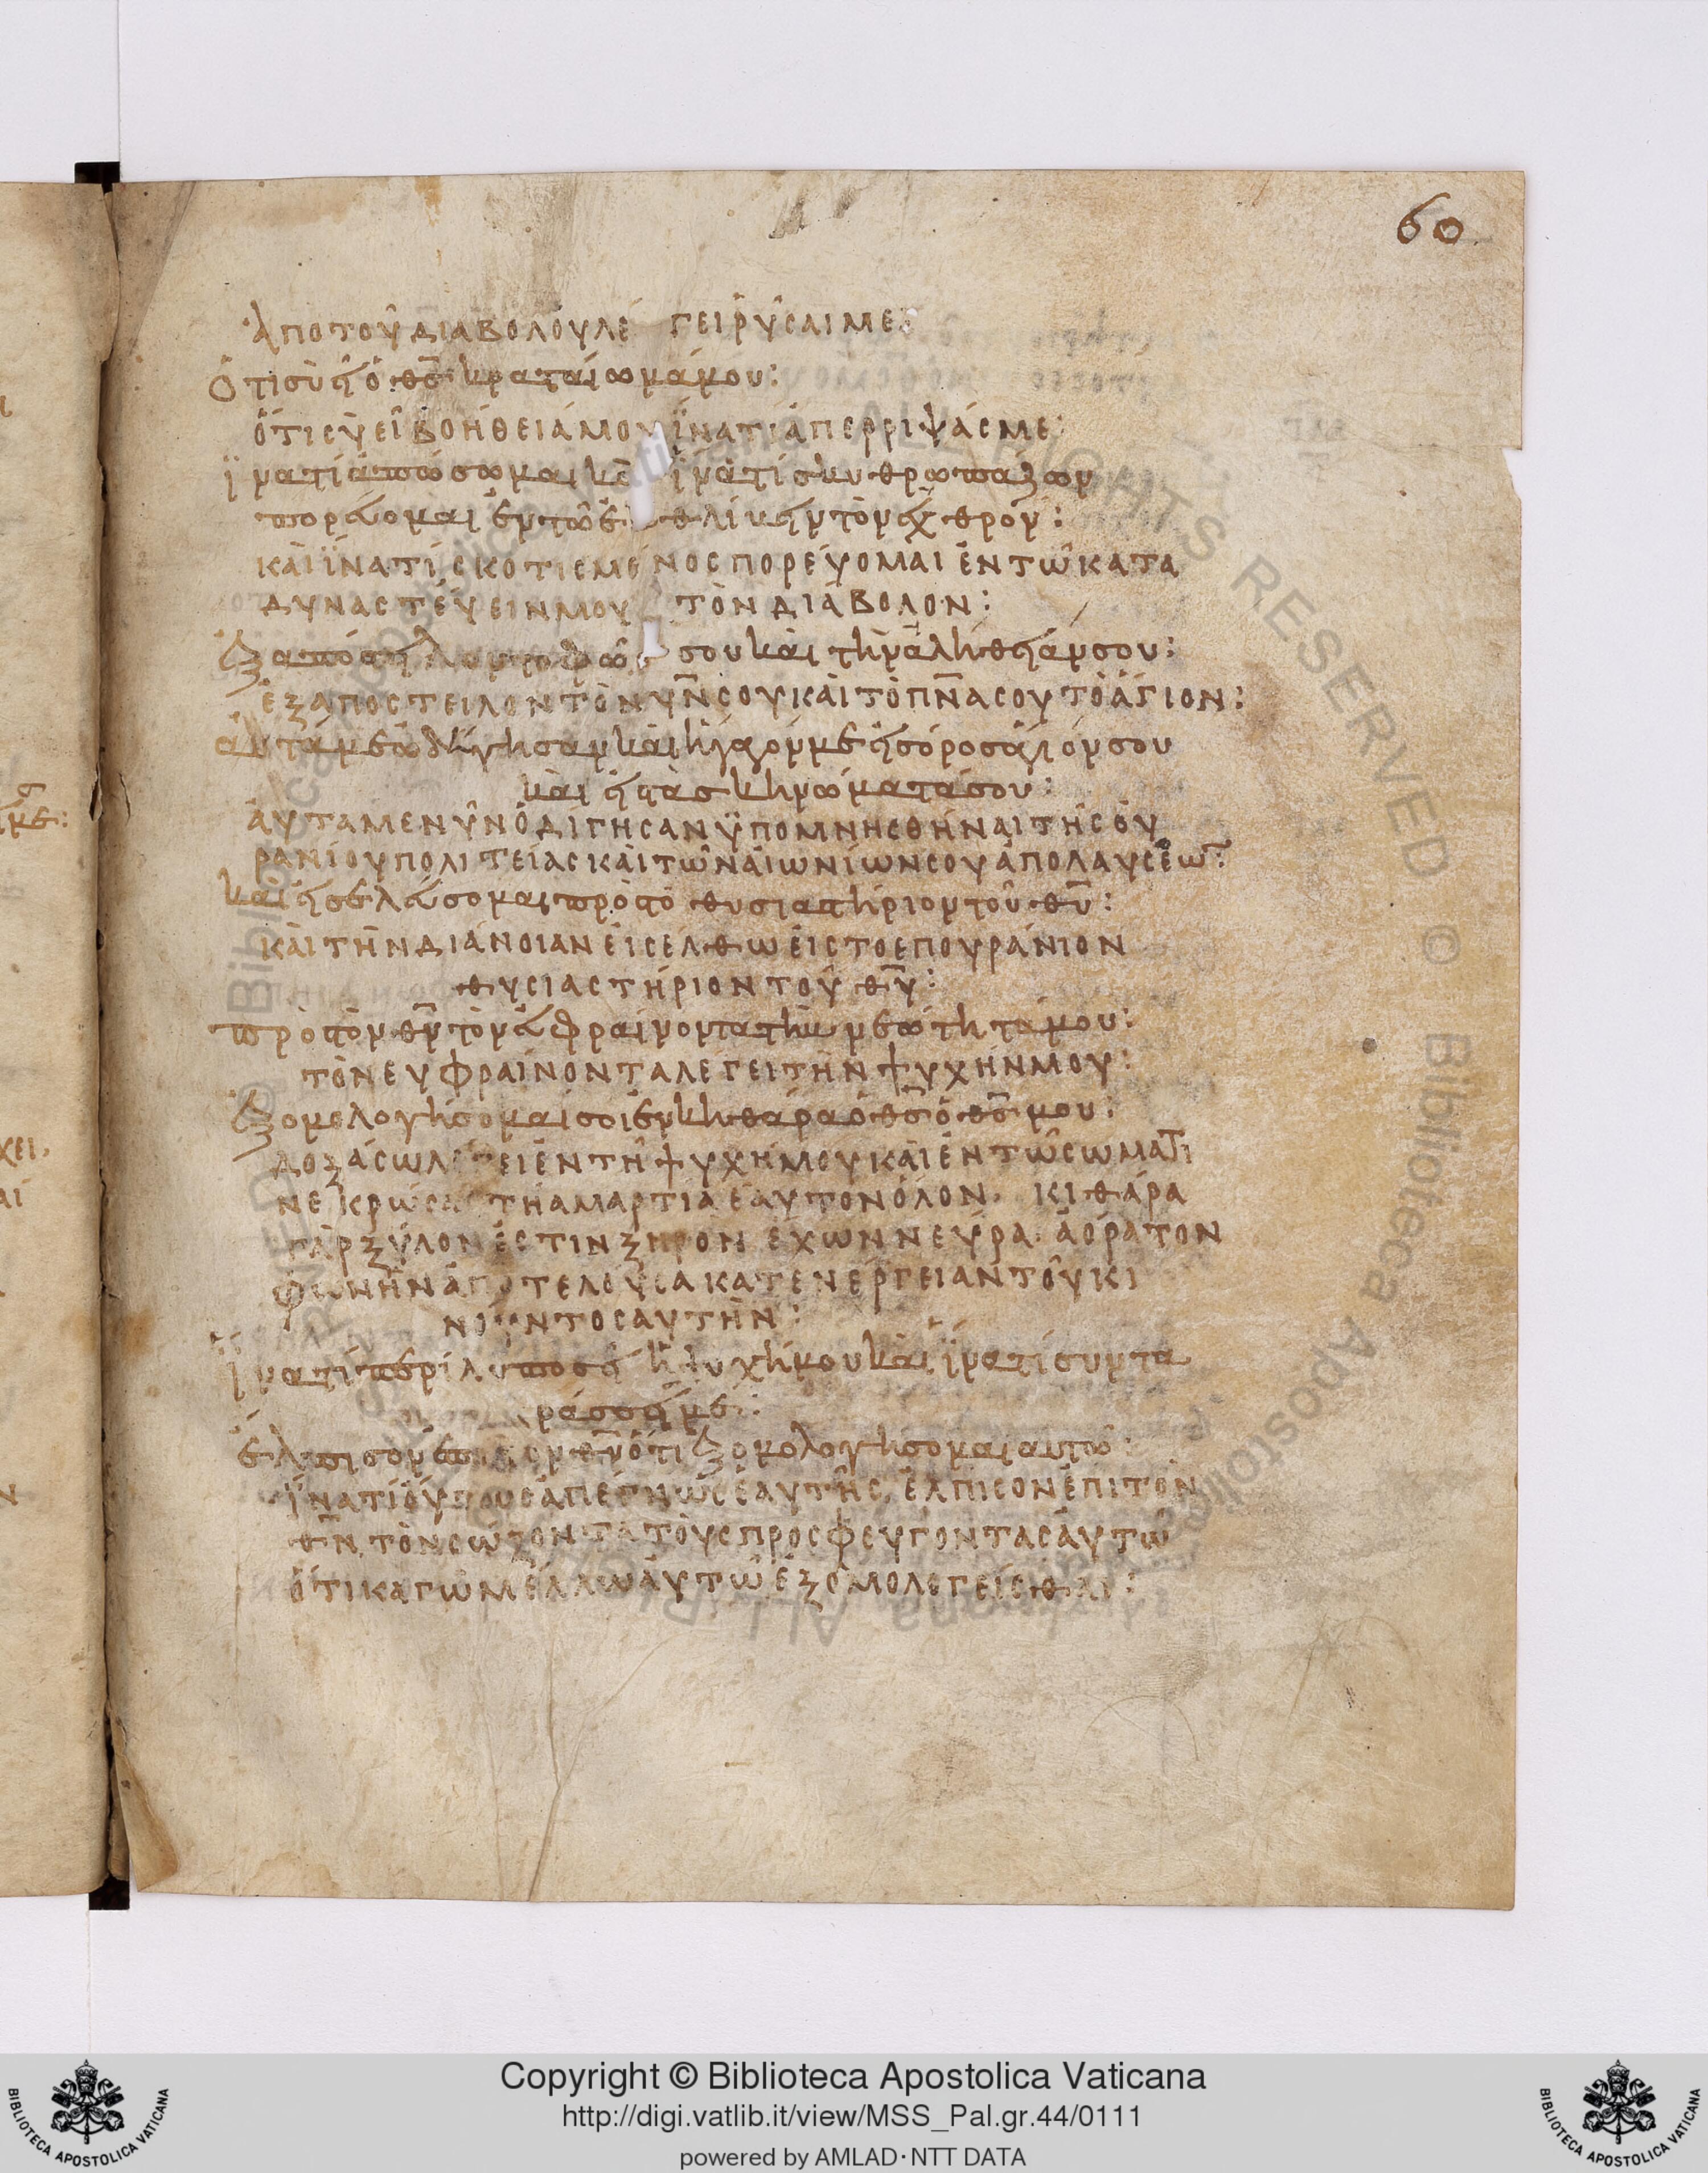 60
ἀπὸ τοῦ διαβόλου λέγει ῥῦσαί με
Ὅτι σὺ εἶ ὁ θς κραταίωμά μου:
ὅτι σὺ εἶ βοήθειά μου ἵνα τί ἀπερρίψάς με:
ἵνα τί ἀπώσω μαι κὲ ἵνα τί σκυθρωπάζων
πορεύομαι ἐν τῶ ἐκθλίβειν τὸν ἐχθρόν:
καὶ ἵνα τί σκοτισμένος πορεύομαι ἐν τῶ κατα
δυναστεύειν μου τὸν διάβολον:
ἐξαπόστειλον τὸ φῶς σου καὶ τὴν ἀλήθειάν σου:
ἐξαπόστειλον τὸν υν σου καὶ τὸ πνα σου τὸ ἅγιον:
αὐτά με ὡδήγησαν καὶ ἤγαγόν με εἰς ὄρος ἅγιόν σου
καὶ εἰς τὰ σκηνώματά σου:
αὐτά με νῦν ὁδίγησαν ὑπομνησθῆναι τῆς οὐ
ρανίου πολιτείας καὶ τῶν αἰωνίων σου ἀπολαύσεως
καὶ εἰσελεύσομαι πρὸς τὸ θυσιαστήριον τοῦ θυ:
καὶ τὴν διάνοιαν εἰσέλθω εἰς τὸ ἐπουράνιον
θυσιαστήριον τοῦ θυ:
πρὸς τὸν θν τὸν εὐφραίνοντα τὴν νεότητά μου:
τὸν εὐφραίνοντα λέγει τὴν ψυχήν μου:
ἐξομολογήσομαί σοι ἐν κηθάρα ὁ θς ὁ θς μου:
δοξάσω λέγει ἐν τῆ ψυχῆ μου καὶ ἐν τῶ σώματι
νεκρώσας τῆ ἁμαρτία ἑαυτὸν ὅλον. κιθάρα
γὰρ ξύλον ἐστιν ξηρὸν ἔχων νεῦρα. ἀόρατον
φωνὴν ἀποτελοῦσα κατ ἐνέργειαν τοῦ κι
νοῦντος αὐτήν:
ἵνα τί περίλυπος εἶ ἡ ψυχή μου καὶ ἵνα τί συντα
ράσσεις με:
ἔλπισον ἐπὶ τὸν θν ὅτι ἐξομολογήσομαι αὐτῶ:
ἵνα τί οὕτως ἀπέγνως ἑαυτῆς, ἔλπισον ἐπὶ τὸν
θν, τὸν σώζοντα τοὺς προσφεύγοντας αὐτῶ
ὅτι καγὼ μέλλω αὐτῶ ἐξομολογεῖσθαι:
Copyright © Biblioteca Apostolica Vaticana
http://digi.vatlib.it/view/MSS_Pal.gr.44/0111
powered by AMLAD·NTT DATA